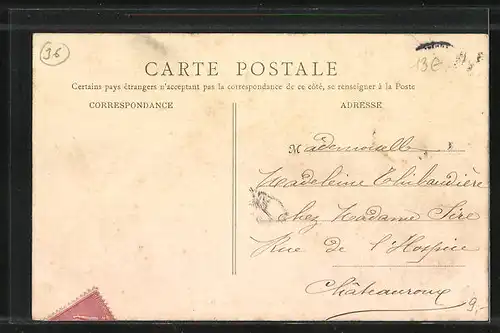 36
13€
CARTE POSTALE
Certains pays étrangers n'acceptant pas la correspondance de ce côté, se renseigner à la Poste
CORRESPONDANCE
ADRESSE
Mademoiselle
Madeleine Thibaudière
Chez Madame Sire
Rue de l'Hospice
Châteauroux
9,-